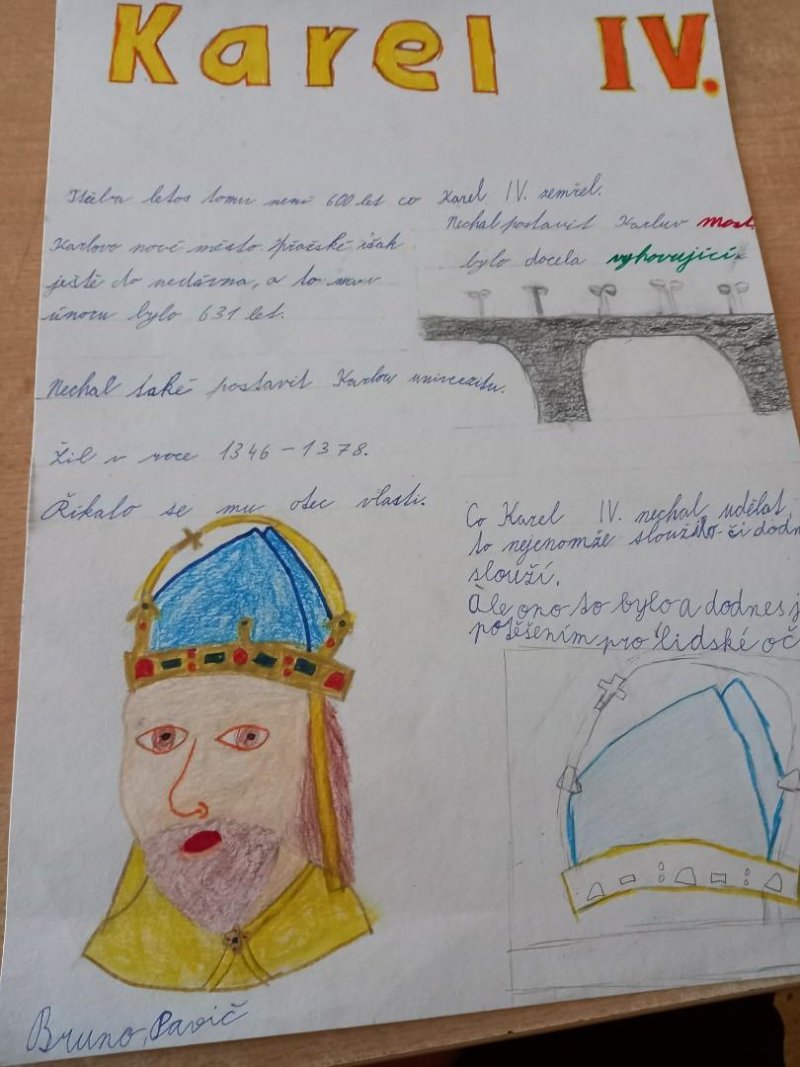 Karel IV.
letos tomu není 600 let co Karel IV. zemřel.
Karlovo nové město pražské však
ještě do nedávna, a to
únoru bylo 631 let.
Nechal postavit Karluv most
bylo docela vyhovující.
Nechal také postavit Karlow univerzitu.
Žil v roce 1346-1378.
Řikalo se mu otec vlasti.
Co Karel IV. nechal udělat,
to nejenomže sloužilo či dodn
slouží.
Ale ono to bylo a dodnes j
potěšením pro lidské oč
Bruno, Pavič